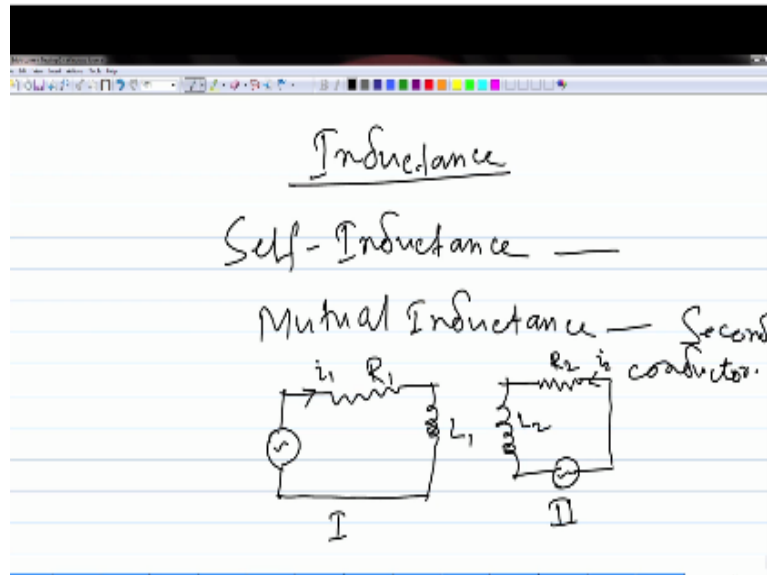 Inductance
Self-Inductance —
Mutual Inductance — Second
conductor.
i₁ R₁ R₂ i₂
L₁ L₂
I II